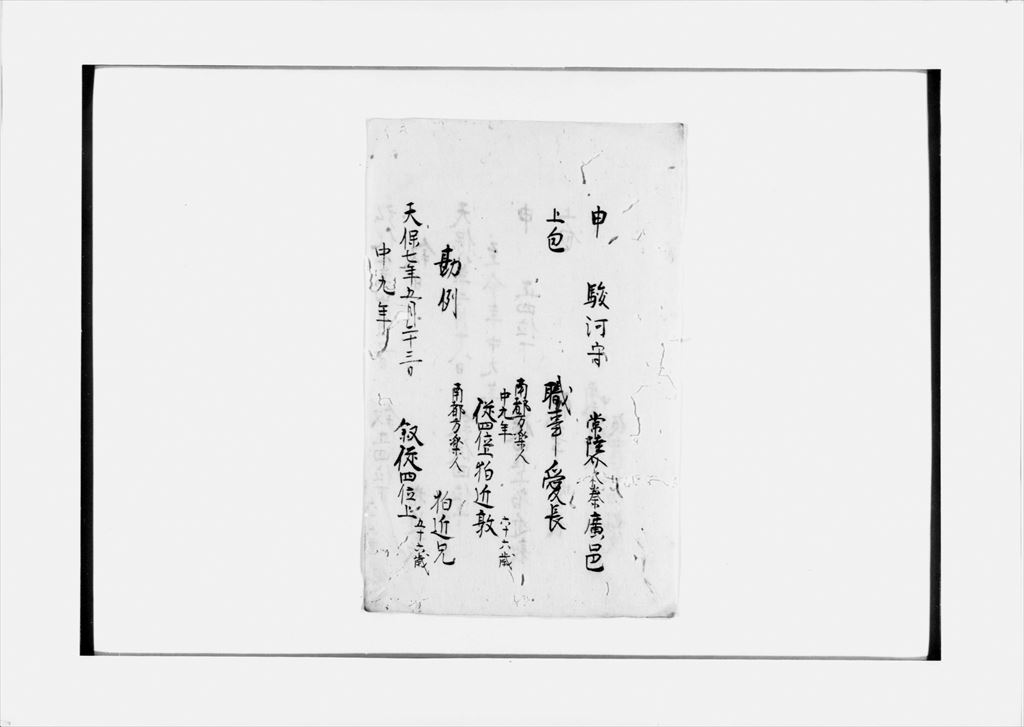 申 駿河守 常陸介秦廣邑
上包 職事 愛長
南都方楽人
中九年
從四位上狛近敦 六十六歳
勘例 南都方楽人 狛近兄
天保七年五月二十三日 叙從四位上 五十六歳
中九年